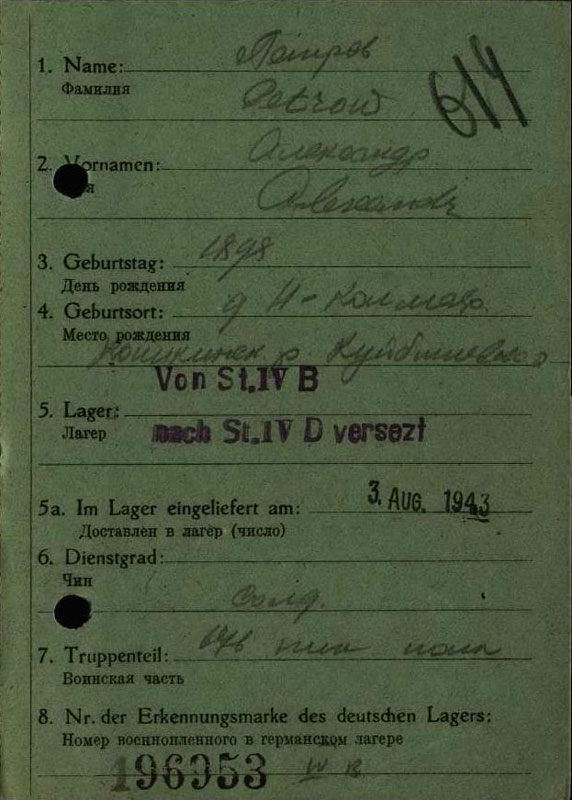 614
1. Name: Петров
Фамилия Petrow
2. Vornamen: Александр
Alexander
3. Geburtstag: 1898
День рождения
4. Geburtsort: д Н-Колмаюр
Место рождения
Кошкинск. р. Куйбышевск
Von St.IV B
5. Lager:
Лагер nach St.IV D versezt
5a. Im Lager eingeliefert am: 3. AUG. 1943
Доставлен в лагер (число)
6. Dienstgrad:
Чин
Солд.
7. Truppenteil:
Воинская часть
8. Nr. der Erkennungsmarke des deutschen Lagers:
Номер военнопленного в германском лагере
196953 IV B